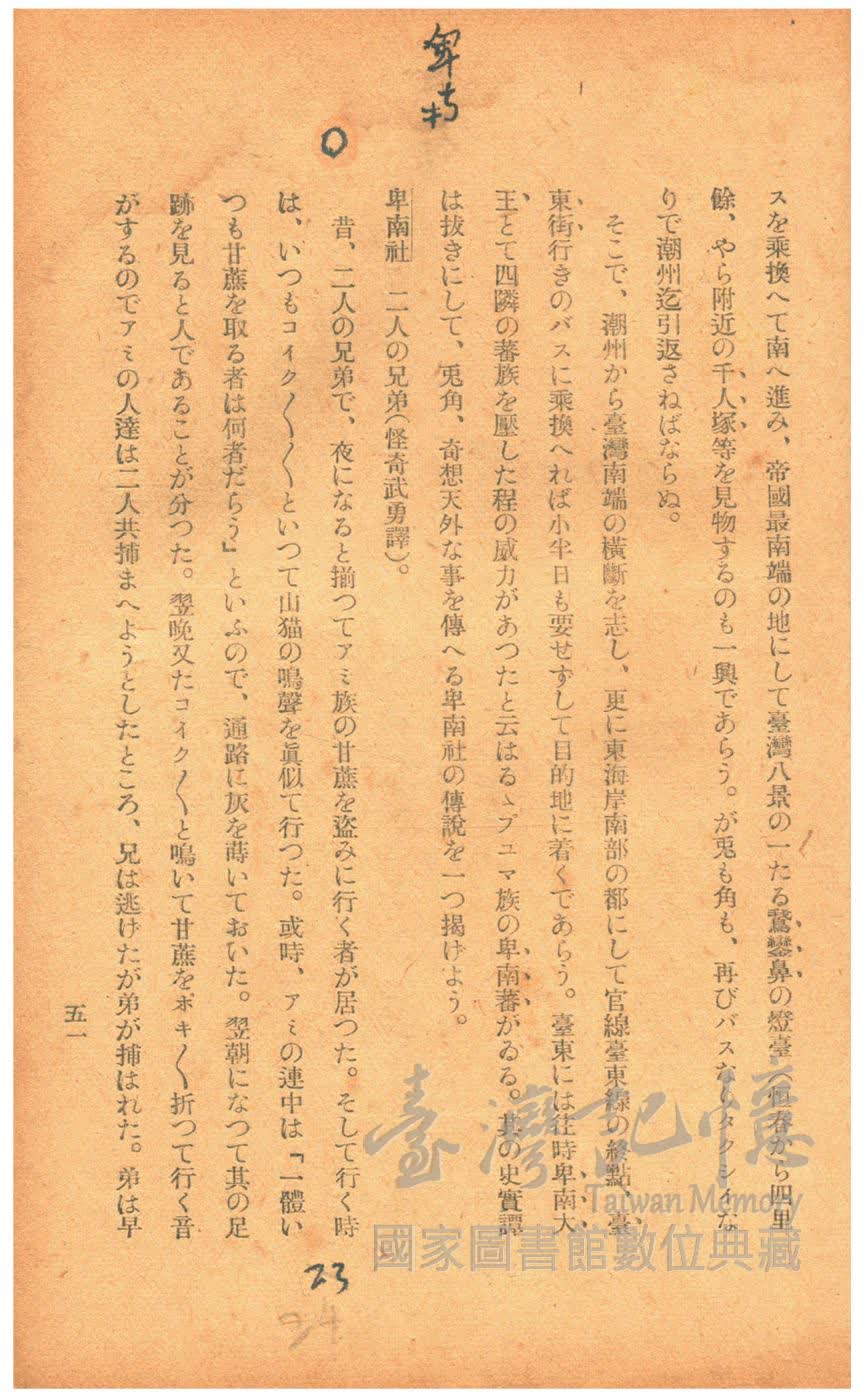 スを乘換へて南へ進み、帝國最南端の地にして臺灣八景の一たる鵞鑾鼻の燈臺(恒春から四里
餘、やら附近の千人塚等を見物するのも一興であらう。が兎も角も、再びバスなりタクシイな
りで潮州迄引返さねばならぬ。
そこで、潮州から臺灣南端の橫斷を志し、更に東海岸南部の都にして官線臺東線の終點、臺
東街行きのバスに乘換へれば小半日も要せずして目的地に着くであらう。臺東には往時卑南大
王とて四隣の蕃族を壓した程の威力があつたと云はるゝプユマ族の卑南蕃がゐる。其の史實譚
は拔きにして、兎角、奇想天外な事を傳へる卑南社の傳說を一つ揭げよう。
卑南社 二人の兄弟(怪奇武勇譚)。
昔、二人の兄弟で、夜になると揃つてアミ族の甘蔗を盜みに行く者が居つた。そして行く時
は、いつもコイク〱〱といつて山猫の鳴聲を眞似て行つた。或時、アミの連中は「一體い
つも甘蔗を取る者は何者だらう」といふので、通路に灰を蒔いておいた。翌朝になつて其の足
跡を見ると人であることが分つた。翌晚又たコイク〱と鳴いて甘蔗をポキ〱折つて行く音
がするのでアミの人達は二人共捕まへようとしたところ、兄は逃げたが弟が捕はれた。弟は早
五一
23
24
臺灣記憶
Taiwan Memory
國家圖書館數位典藏